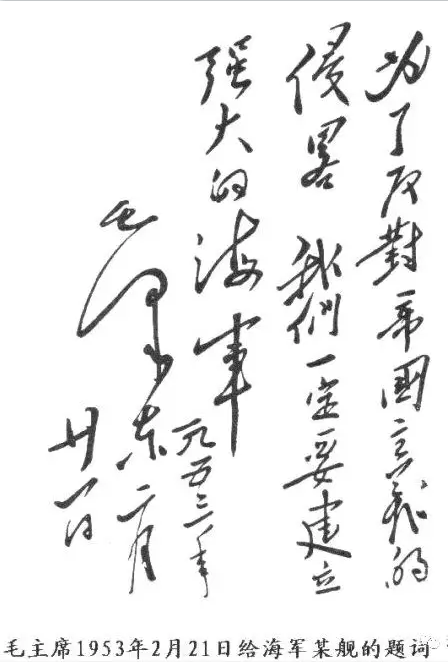 为了反對帝國主義的
侵畧 我們一定要建立
强大的海軍
毛泽东
一九五三年
二月
廿一日
毛主席1953年2月21日给海军某舰的题词